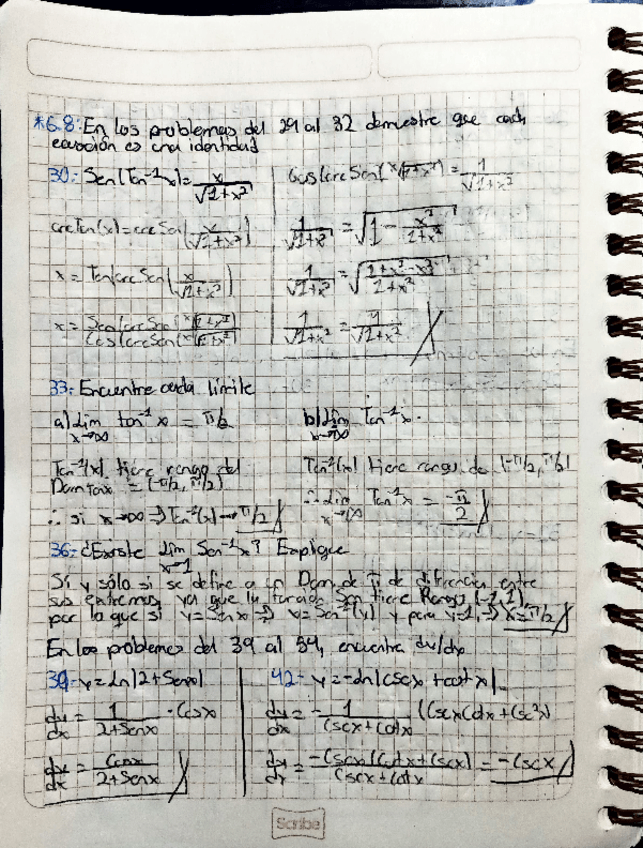 *6.8: En los problemas del 29 al 32 demuestre que cada
ecuación es una identidad
30- Sen(Tan⁻¹x) = x/√(1+x²)
arcTan(x) = arcSen(x/√(1+x²))
x = Tan(arcSen(x/√(1+x²)))
x = Sen(arcSen(x/√(1+x²)))/Cos(arcSen(x/√(1+x²)))
Cos(arcSen(x/√(1+x²))) = 1/√(1+x²)
1/√(1+x²) = √(1 - x²/(1+x²))
1/√(1+x²) = √((1+x²-x²)/(1+x²))
1/√(1+x²) = 1/√(1+x²)
33- Encuentre cada límite
a) lim x→∞ tan⁻¹ x = π/2
Tan⁻¹(x) tiene rango del
Dom Tax = (-π/2, π/2)
∴ si x→∞ ⇒ Tan⁻¹(x) → π/2
b) lim Tan⁻¹x.
Tan⁻¹(x) tiene rango de (-π/2, π/2)
∴ lim Tan⁻¹x = -π/2
36- ¿Existe lim x→1 Sen⁻¹x? Explique
Sí y sólo si se define a un Dom de π de diferencia entre
sus extremos, ya que la función Sen tiene Rango (-1,1)
por lo que si y=Senx ⇒ x=Sen⁻¹(y) y para y=1, ⇒ x=π/2
En los problemas del 39 al 54, encuentra dy/dx
39- y = Ln|2+Senx|
dy/dx = 1/(2+Senx) · Cosx
dy/dx = Cosx/(2+Senx)
42- y = -Ln|cscx + cotx|
dy/dx = -1/(Cscx+Cotx) (CscxCotx+Csc²x)
dy/dx = -Cscx(Cotx+Cscx)/(Cscx+Cotx) = -Cscx
Scribe